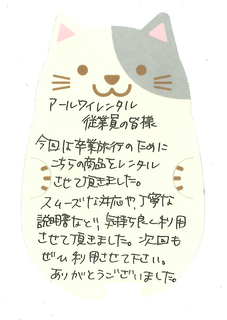 アールワイレンタル
従業員の皆様
今回は卒業旅行のために
こちらの商品をレンタル
させて頂きました。
スムーズな対応や、丁寧な
説明書など、気持ち良く利用
させて頂きました。次回も
ぜひ利用させて下さい。
ありがとうございました。